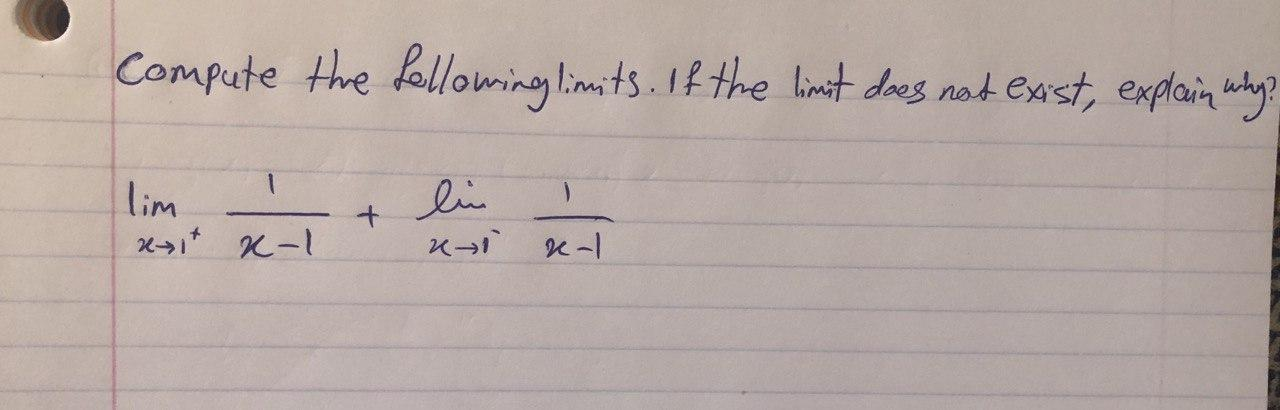 Compute the following limits. If the limit does not exist, explain why?
lim x→1⁺ 1/(x-1) + lim x→1⁻ 1/(x-1)